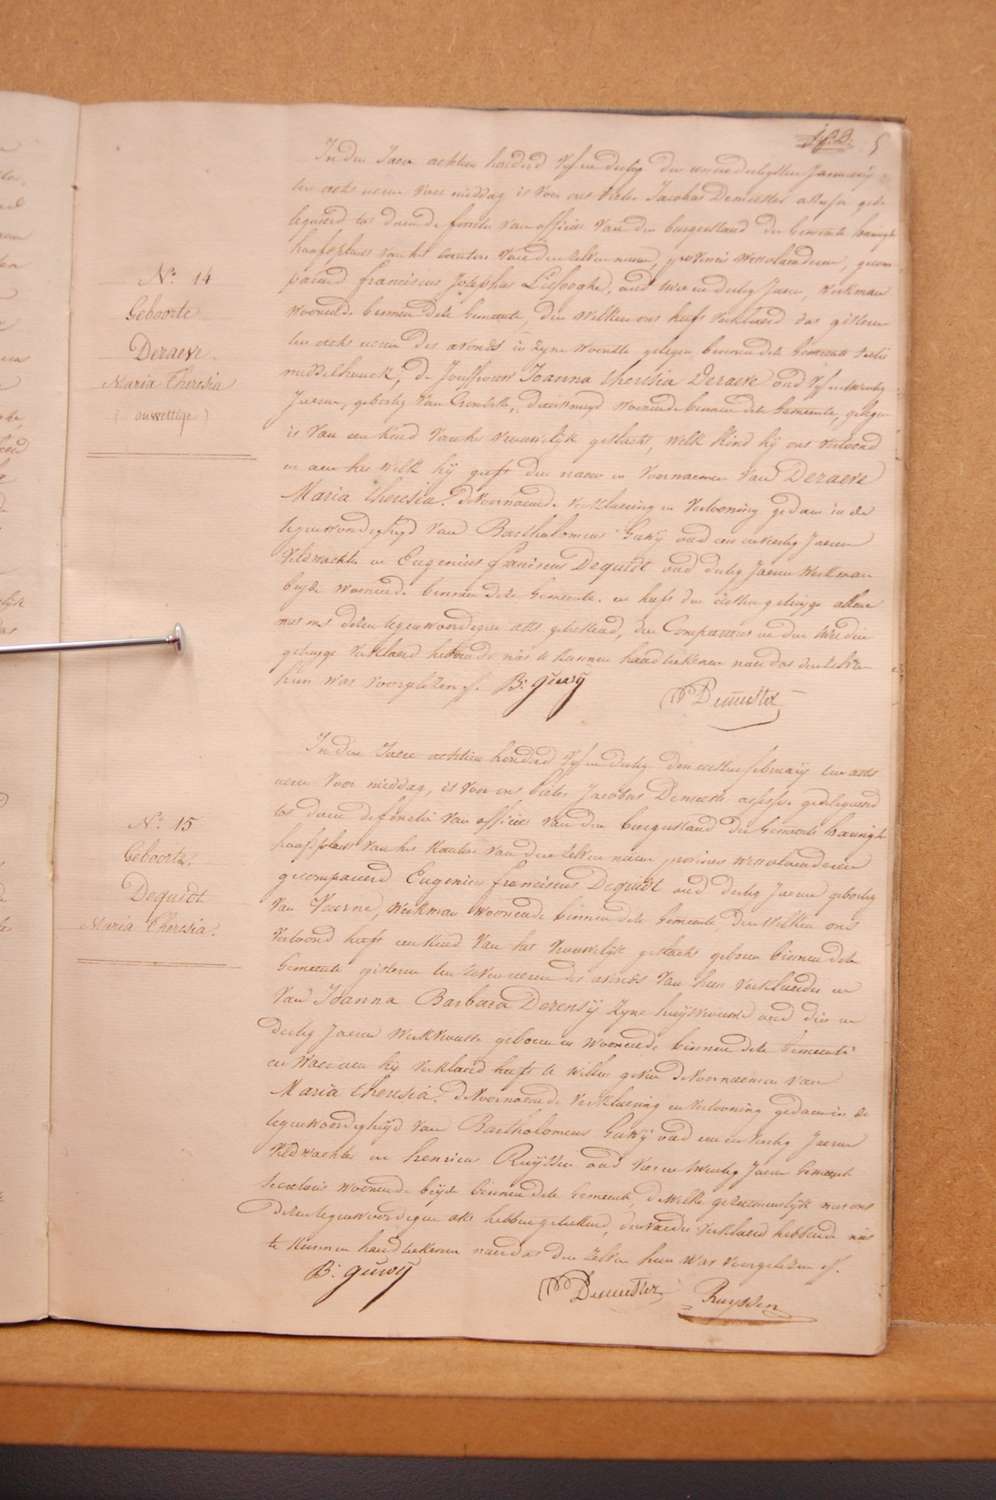 5
In den Jaere achtien honderd vyf en dertig den een en dertigsten January
ten acht uren voor middag is voor ons Pieter Jacobus Demeester assessor gede
legueerd tot doen de functie van officier van den burgerstand der Gemeente haeringhe
hoofdplaets van het kanton van den zelven naem, provincie Westvlaenderen, gecom
pareerd franciscus Josephus oud twee en dertig Jaeren, Werkman
woonende binnen deze Gemeente, den welken ons heeft verklaerd dat gisteren
ten acht uren des avonds in zyne woonste gelegen binnen deze Gemeente
de Jouffrouw Joanna theresia Deraeve oud vyf en twintig
Jaeren, geboortig van Crombeke, woonende binnen deze Gemeente, gelegen
is van een kind van het vrouwelyk geslacht, welk kind hy ons vertoond
en aen het welk hy geeft den naem en voornaemen van Deraeve
Maria theresia. de voornoemde verklaering en vertooning gedaen in de
tegenwoordigheyd van Bartholomeus Guwÿ oud een en veertig Jaeren
veldwachter en Eugenius franciscus Dequidt oud dertig Jaeren Werkman
beyde woonende binnen deze Gemeente. en heeft den eersten getuyge alleen
met ons dezen tegenwoordigen akte geteekend, den Comparant en den tweeden
getuyge verklaerd hebbende niet te kunnen handteekenen naer dat den zelven
hun was voorgelezen /.
B: guwÿ
Demeester
N: 14
Geboorte
Deraeve.
Maria Theresia
(onwettige)
In den Jaere achtien honderd vyf en dertig den eersten february ten acht
uren voor middag, is voor ons Pieter Jacobus Demeester assessor gedelegueerd
tot doen de functie van officier van den burgerstand der Gemeente haeringhe
hoofdplaets van het kanton van den zelven naem provincie Westvlaenderen
gecompareerd Eugenius franciscus Dequidt oud dertig Jaeren geboortig
van Veurne, Werkman woonende binnen deze Gemeente, den welken ons
vertoond heeft een kind van het vrouwelyk geslacht geboren binnen deze
Gemeente gisteren ten zeven uren des avonds van hem verklaerder en
van Joanna Barbara Derensÿ zyne huysvrouwe oud dry en
dertig Jaeren Werkvrouwe geboren en woonende binnen deze Gemeente
en waer aen hy verklaerd heeft te willen geven de voornaemen van
Maria theresia. de voornoemde verklaering en vertooning gedaen in de
tegenwoordigheyd van Bartholomeus Guwÿ oud een en veertig Jaeren
veldwachter en henricus Ruyssen oud vier en twintig Jaeren Gemeente
secretaris woonende beyde binnen deze Gemeente, dewelke gezamentlyk met ons
dezen tegenwoordigen akte hebben geteekend, den vader verklaerd hebbende niet
te kunnen handteekenen naer dat den zelven hun was voorgelezen /.
B: guwÿ
Demeester
Ruyssen
N: 15
Geboorte.
Dequidt
Maria Theresia.